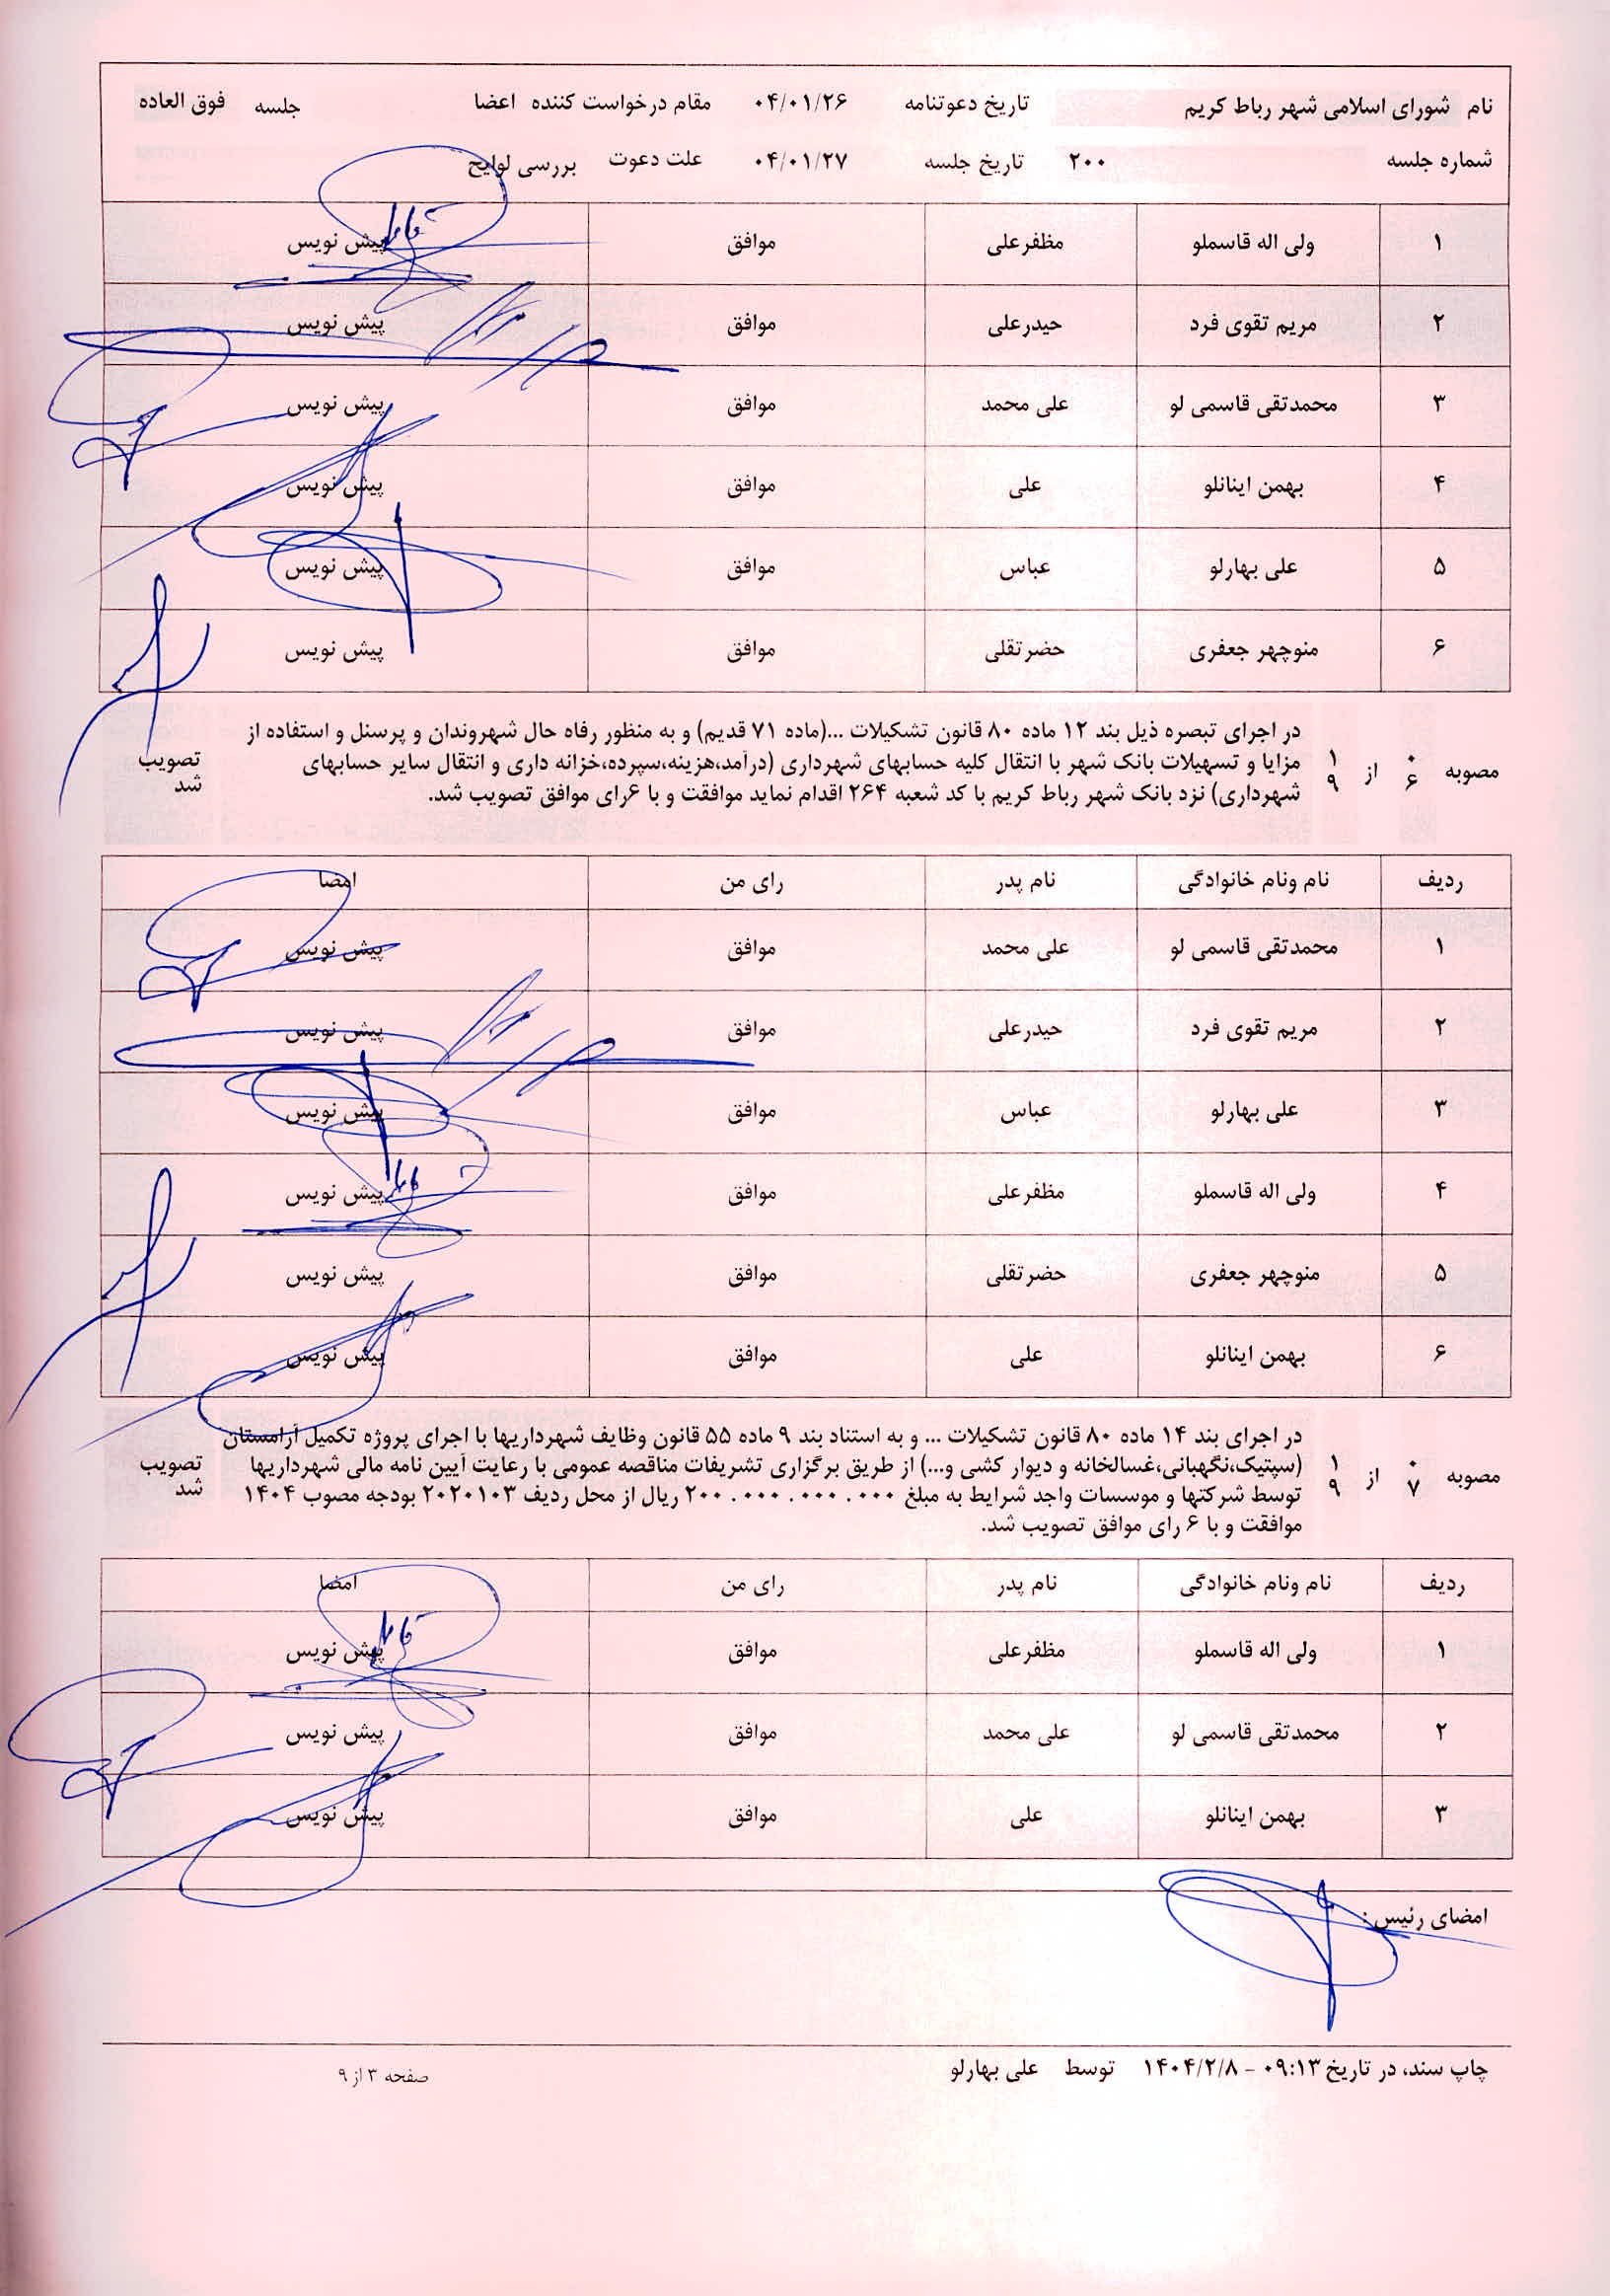 نام شورای اسلامی شهر رباط کریم تاریخ دعوتنامه ۰۴/۰۱/۲۶ مقام درخواست کننده اعضا جلسه فوق العاده
شماره جلسه ۲۰۰ تاریخ جلسه ۰۴/۰۱/۲۷ علت دعوت بررسی لوایح
۱ ولی اله قاسملو مظفرعلی موافق پیش نویس
۲ مریم تقوی فرد حیدرعلی موافق پیش نویس
۳ محمدتقی قاسمی لو علی محمد موافق پیش نویس
۴ بهمن اینانلو علی موافق پیش نویس
۵ علی بهارلو عباس موافق پیش نویس
۶ منوچهر جعفری حضرتقلی موافق پیش نویس
مصوبه ۰۶ از ۱۹
در اجرای تبصره ذیل بند ۱۲ ماده ۸۰ قانون تشکیلات ...(ماده ۷۱ قدیم) و به منظور رفاه حال شهروندان و پرسنل و استفاده از
مزایا و تسهیلات بانک شهر با انتقال کلیه حسابهای شهرداری (درآمد،هزینه،سپرده،خزانه داری و انتقال سایر حسابهای
شهرداری) نزد بانک شهر رباط کریم با کد شعبه ۲۶۴ اقدام نماید موافقت و با ۶رای موافق تصویب شد.
تصویب شد
ردیف نام ونام خانوادگی نام پدر رای من امضا
۱ محمدتقی قاسمی لو علی محمد موافق پیش نویس
۲ مریم تقوی فرد حیدرعلی موافق پیش نویس
۳ علی بهارلو عباس موافق پیش نویس
۴ ولی اله قاسملو مظفرعلی موافق پیش نویس
۵ منوچهر جعفری حضرتقلی موافق پیش نویس
۶ بهمن اینانلو علی موافق پیش نویس
مصوبه ۰۷ از ۱۹
در اجرای بند ۱۴ ماده ۸۰ قانون تشکیلات ... و به استناد بند ۹ ماده ۵۵ قانون وظایف شهرداریها با اجرای پروژه تکمیل آرامستان
(سپتیک،نگهبانی،غسالخانه و دیوار کشی و...) از طریق برگزاری تشریفات مناقصه عمومی با رعایت آیین نامه مالی شهرداریها
توسط شرکتها و موسسات واجد شرایط به مبلغ ۲۰۰.۰۰۰.۰۰۰.۰۰۰ ریال از محل ردیف ۲۰۲۰۱۰۳ بودجه مصوب ۱۴۰۴
موافقت و با ۶ رای موافق تصویب شد.
تصویب شد
ردیف نام ونام خانوادگی نام پدر رای من امضا
۱ ولی اله قاسملو مظفرعلی موافق پیش نویس
۲ محمدتقی قاسمی لو علی محمد موافق پیش نویس
۳ بهمن اینانلو علی موافق پیش نویس
امضای رئیس:
چاپ سند، در تاریخ ۰۹:۱۳ - ۱۴۰۴/۲/۸ توسط علی بهارلو صفحه ۳ از ۹